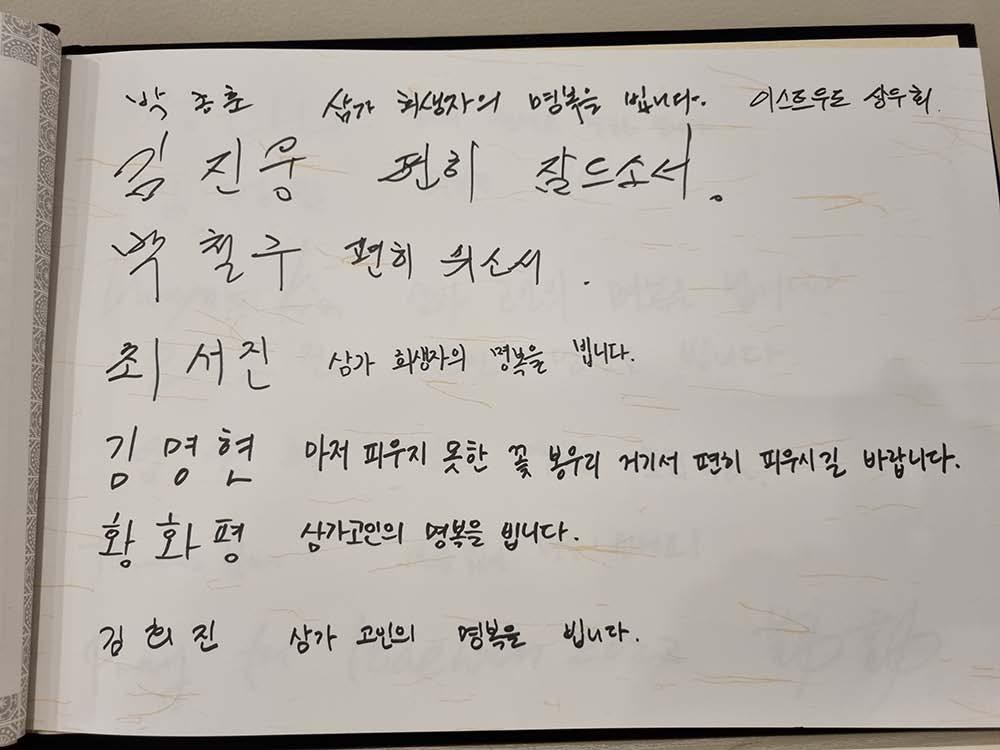 박종훈 삼가 희생자의 명복을 빕니다. 이스트우드 상우회.
김진웅 편히 잠드소서.
박철구 편히 쉬소서.
최서진 삼가 희생자의 명복을 빕니다.
김명현 마저 피우지 못한 꽃 봉우리 거기서 편히 피우시길 바랍니다.
황화평 삼가고인의 명복을 빕니다.
김희진 삼가 고인의 명복을 빕니다.